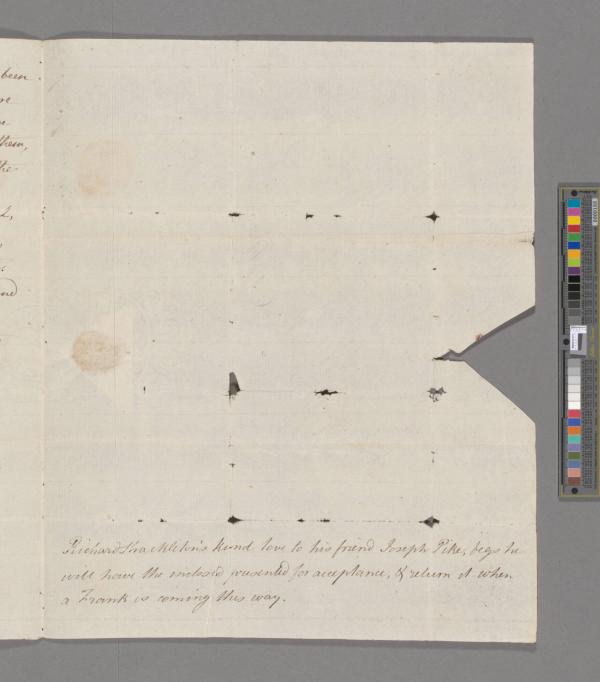 been
re
them,
the
2,
Richard Shackleton's kind love to his friend Joseph Pike, begs he
will have the inclosed presented for acceptance, & return it when
a Frank is coming this way.